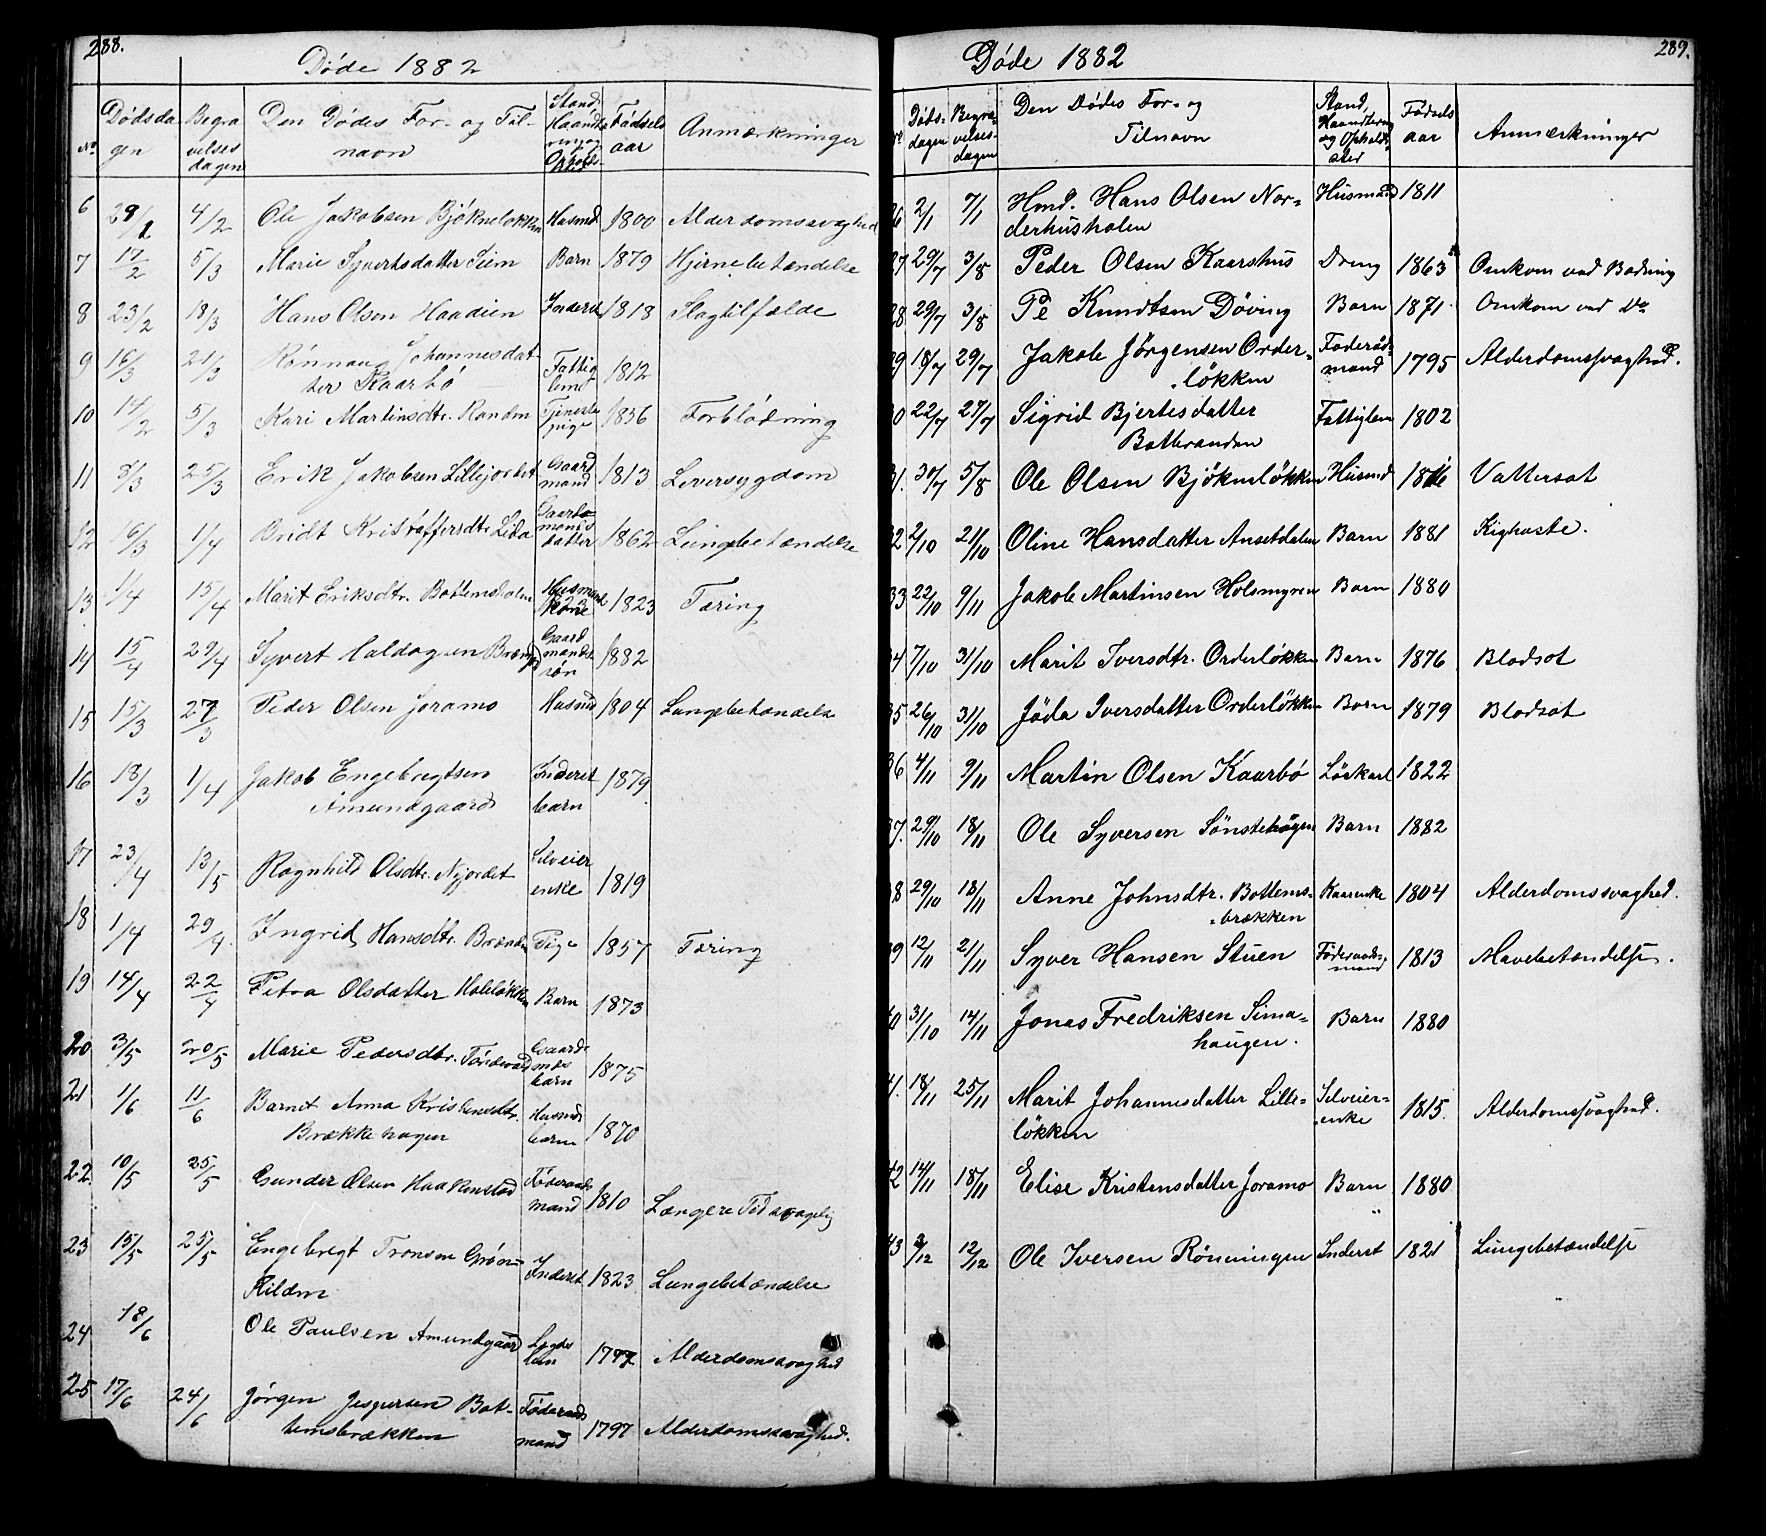 288.
Døde 1882
No
Dødsda
gen
Begra
velses
dagen
Den Dødes For- og Til-
navn
Stand
Haandte
ring og
Opholds-
Fødsels
aar
Anmærkninger
6 29/1 4/2 Ole Jakobsen Bjøknelokken Husmd 1800 Alderdomssvaghed
7 17/2 5/3 Marie Syvertsdatter Siem Barn 1879 Hjernebetændelse
8 23/2 18/3 Hans Olsen Haadien Inderst 1818 Slagtilfælde
9 16/3 21/3 Rønnaug Johannesdat-
ter Kaarbó Fattig
lem 1812
10 14/2 5/3 Kari Martinsdtr. Randen Tjeneste
pige 1856 Forblødning
11 8/3 25/3 Erik Jakobsen Lillejordet Gaard
mand 1813 Leversygdom
12 16/3 1/4 Bridt Kristoffersdtr Lida Gaard
mands
datter 1862 Lungebetændelse
13 1/4 15/4 Marit Eriksdtr. Bottemsholm Husmands
kone 1823 Tæring
14 15/4 29/4 Syvert Haldogsen Gaard
mands
søn 1882
15 15/3 27/3 Peder Olsen Joramo Husmd 1804 Lungebetændelse
16 18/3 1/4 Jakob Engebregtsen
Amundgaard Inderst
barn 1879
17 23/4 13/5 Ragnhild Olsdtr. Nyjordet Selveier
enke 1819
18 1/4 29/4 Ingrid Hansdtr. Brænden Pige 1857 Tæring
19 14/4 22/4 Petra Olsdatter Holeløkken Barn 1873
20 3/5 20/5 Marie Pedersdtr. Gaard-
mds
barn 1875
21 1/6 11/6 Barnet Anna Kristensdtr.
Brækkehagen Husmds
barn 1870
22 10/5 25/5 Gunder Olsen Haakenstad Føderaads
mand 1810 Længere Tid svagelig
23 15/5 25/5 Engebregt Tronsen Grøn-
Kilden Inderst 1823 Lungebetændelse
24 18/6 Ole Paulsen Amundgaard Lægds
lem Alderdomssvaghed
25 17/6 24/6 Jørgen Jespersen Bot-
temsbrækken Føderaads
mand 1797 Alderdomssvaghed.
289.
Døde 1882
No
Døds-
dagen
Begra-
velses-
dagen
Den Dødes For- og
Tilnavn
Stand,
Haandtering
og Opholds
sted
Fødsels
aar
Anmærkninger
26 2/1 7/1 Hmd. Hans Olsen Nor-
derhusholen Husmand 1811
27 29/7 3/8 Peder Olsen Kaarshus Dreng 1863 Omkom ved Badning
28 29/7 3/8 Pe Knudtsen Døving Barn 1871 Omkom ved Do
29 18/7 29/7 Jakob Jörgensen Order-
løkken Føderåd-
mand 1795 Alderdomssvaghed.
30 22/7 27/7 Sigrid Bjertesdatter
Botheranden Fattiglem 1802
31. 30/7 5/8 Ole Olsen Bjöknløkken Husmd Vattersot
32 2/10 21/10 Oline Hansdatter Ansetdalen Barn 1881 Kighoste.
33 22/10 9/11 Jakob Martinsen Holsmyren Barn 1880
34 7/10 31/10 Marit Iversdtr. Orderløkken Barn 1876 Blodsot
35 26/10 31/10 Jöda Iversdatter Orderløkken Barn 1879 Blodsot
36 4/11 9/11 Martin Olsen Kaarbö Löskarl 1822
37. 29/10 18/11 Ole Syversen Sönstehagen Barn 1882
38 29/10 18/11 Anne Johnsdtr. Bottems-
brækken Kaarenke 1804 Alderdomssvaghed.
39 12/11 21/11 Syver Hansen Stuen Föderaads-
mand 1813 Mavebetændelse.
40 31/10 14/11 Jonas Fredriksen Sima-
haugen. Barn 1880
41. 18/11 25/11 Marit Johannesdatter Lille-
løkken Selveier-
enke 1815. Alderdomssvaghed.
42 14/11 18/11 Elise Kristensdatter Joramo Barn 1880
"
43 2/12 12/12 Ole Iversen Rönningen Inderst 1821 Lungebetændelse